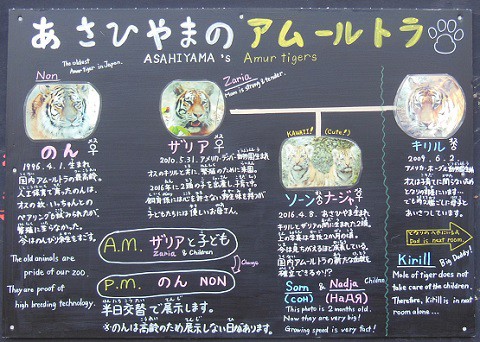 あさひやまの アムールトラ
ASAHIYAMA's Amur tigers
Non
The oldest
Amur tiger in Japan.
のん♀
1996.4.1.生まれ
国内アムールトラの最高齢。
人工保育で育ったのんは、
オスの いっちゃんとの
ペアリングが試みられたが、
繁殖に至らなかった。
今はのんびり余生をすごす。
The old animals are
pride of our zoo,
They are proof of
high breeding technology.
Zaria
Mom is strong & tender.
ザリア♀
メス
2010.5.31.アメリカ・デンバー動物園生まれ
オスのキリルと共に、繁殖のために来園。
2016年に2頭の子を出産し、子育て中。
子どもたちには優しいお母さん。
A.M. ザリアと子ども
Zaria & Children
Change
P.M. のん NON
半日交替で展示します。
※のんは高齢のため展示しない日があります。
KAWAII! (Cute!)
ソーン♂ナージャ♀
2016.4.8.あさひやま生まれ
キリルとザリアの間に生まれた2頭。
上の写真は生後2か月の頃。
今は見ちがえるほど成長している。
国内アムールトラの新たな血統を
確立できるか!?
Sorn & Nadja Children
(СОН) (НаДЯ)
This photo is 2 months old.
Now they are very big!
Growing speed is very fast!
キリル♂
オス
2009.6.2.
オスは子育てに関らない為
となりの
あいさつしています。
となりのへやにいるよ
Dad is next room.
Kirill Big Daddy!
Male of tiger does not
take care of the children.
Therefore, Kirill is in next
room alone...